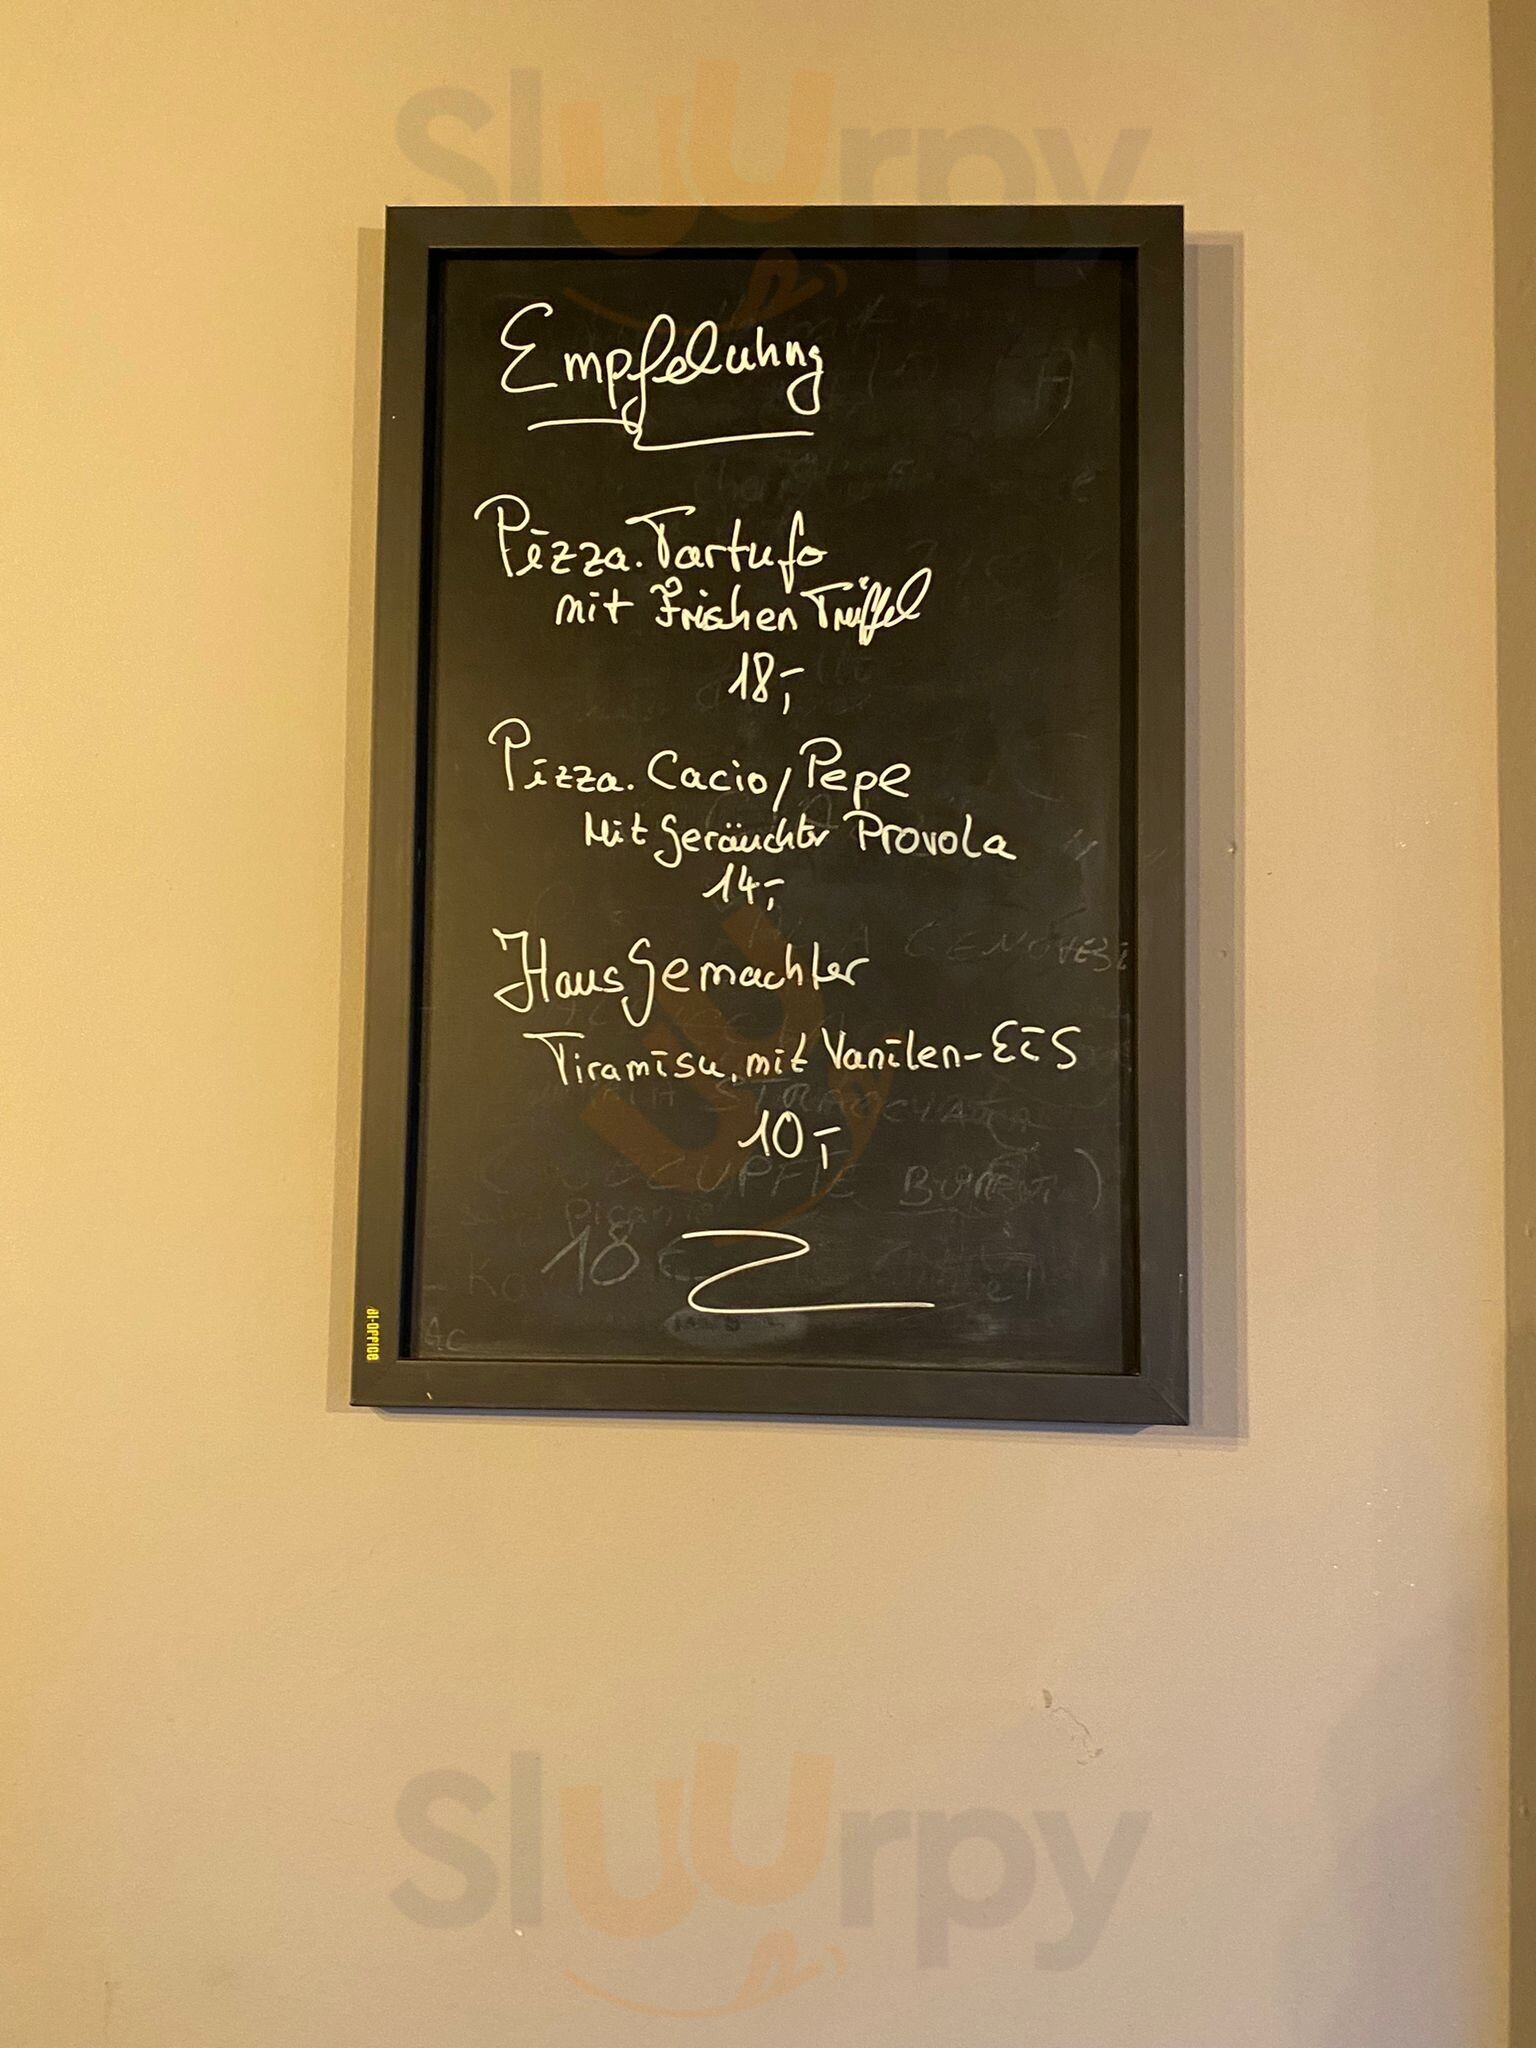 Sluurpy
Empfeluhng
Pizza. Tartufo
mit Frischen Trüffel
18,-
Pizza. Cacio/Pepe
Mit Geräuchter Provola
14,-
HausGemachter
Tiramisu, mit Vanilen-Eis
10,-
18 €
BI-OFFICE
Sluurpy